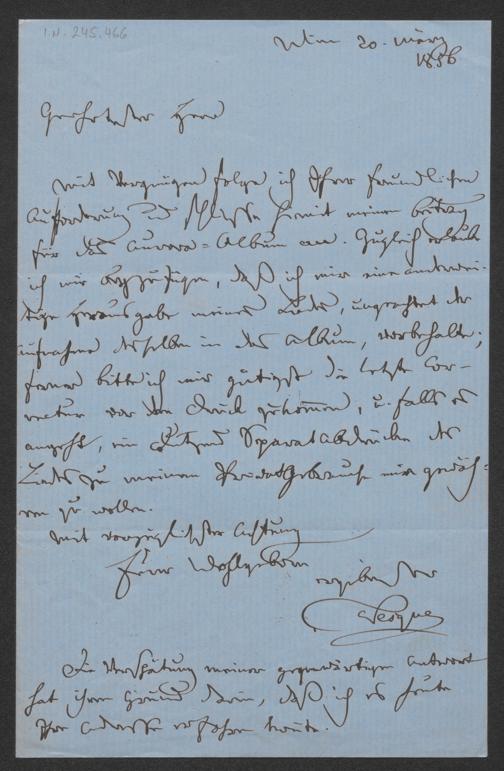 I.N. 245.466
Wien 20. März
1856
Geehrtester Herr
mit Vergnügen folge ich Ihrer freundlichen
Aufforderung und schließe hiermit meinen Beitrag
für das Aurora-Album an. Zugleich erlaube
ich mir beyzufügen, daß ich mir eine anderwei-
tige Herausgabe meines Liedes, ungeachtet der
Aufnahme desselben in das Album, vorbehalte;
ferner bitte ich mir gütigst die letzte Cor-
rectur vor dem Druck zukommen, u. falls es
angeht, ein Dutzend Separatabdrücke des
Liedes zu meinem Privatgebrauche mir gewäh-
ren zu wollen.
Mit vorzüglichster Achtung
Euer Wohlgeborn
ergebenster
Vesque
Die Verspätung meiner gegenwärtigen Antwort
hat ihren Grund darin, daß ich es heute
Ihre Adresse erfahren konnte.